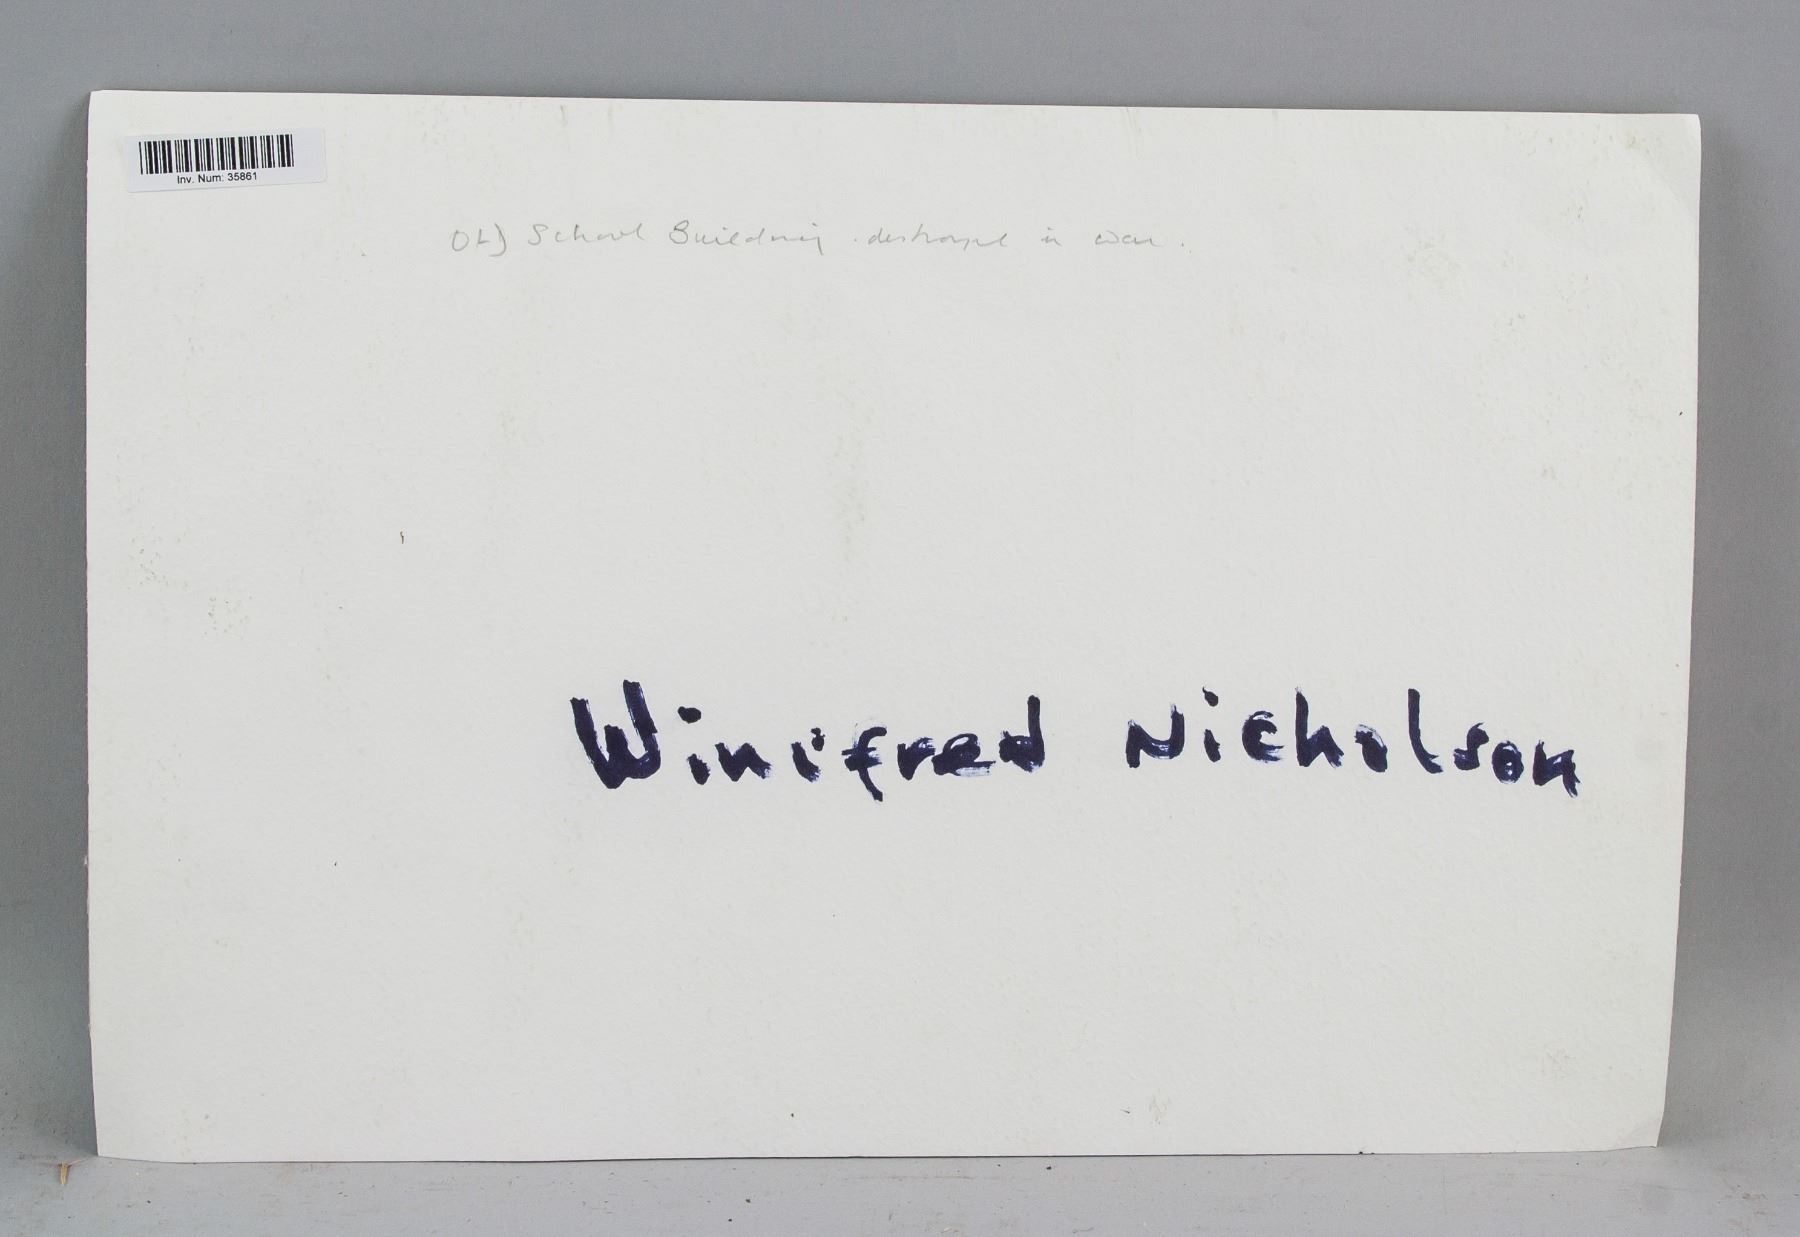 Inv. Num: 35861
OLD School Building . destroyed in war .
Winifred Nicholson